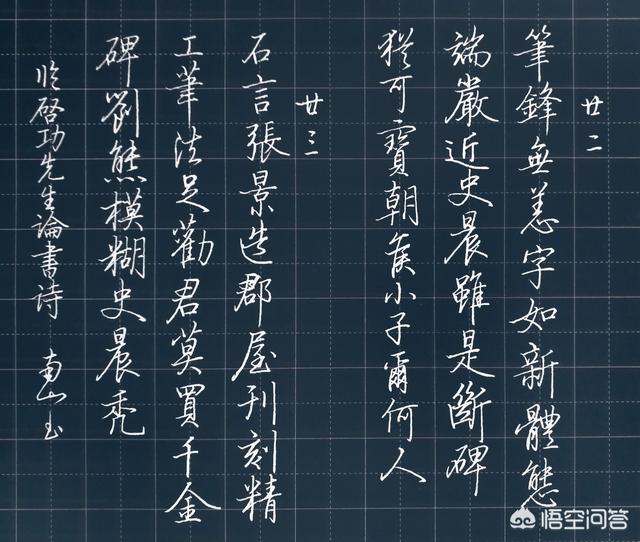 廿二
筆鋒無恙字如新體態
端嚴近史晨雖是斷碑
猶可寶朝侯小子爾何人
廿三
石言張景造郡屋刊刻精
工筆法足勸君莫買千金
碑劉熊模糊史晨禿
臨啓功先生論書詩 南山玉
悟空问答